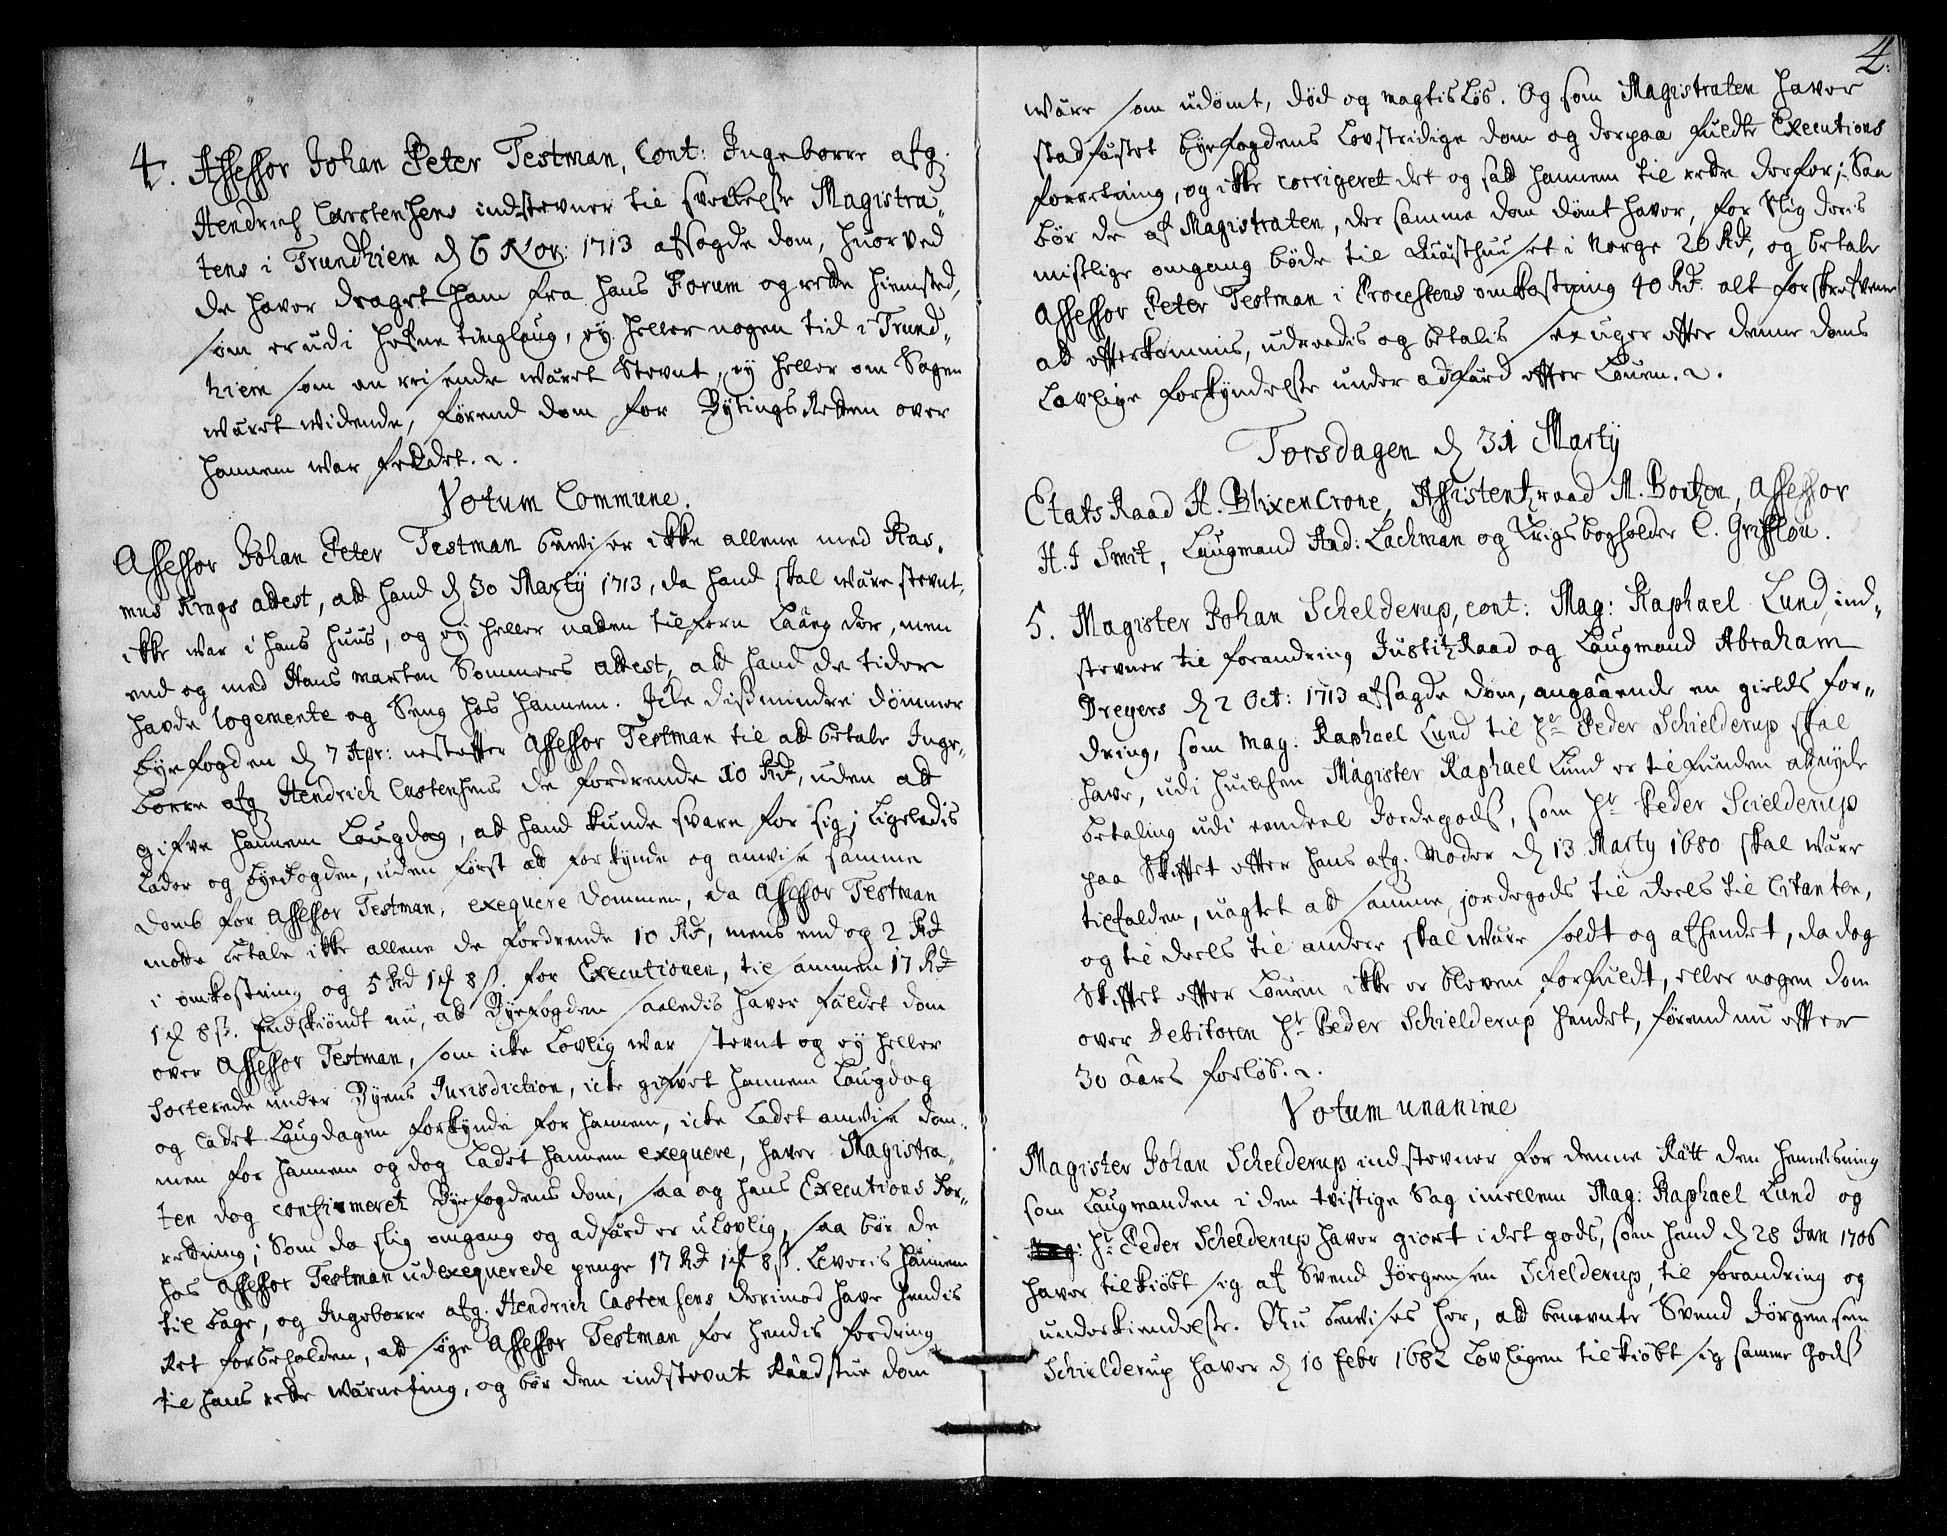 4. Assessor Johan Peter Testman, Cont: Ingeborre afg.
Hendrich Carstensens indstevner til svækelse Magistra„
tens i Trundhiem d. 6 Nov: 1713 afsagde dom, huorved
de hafver draget ham fra hans Forum og rette hiemsted,
som er udi Hefne tinglaug, ey heller nogen tid i Trund„
hiem som en reisende wæret Stevnt, ey heller om Sagen
wæret widende, førend dom for Bytings Retten over
hannem war feldet.
Votum Commune.
Assessor Johan Peter Testman bewiser ikke allene med Ras„
mus Krags attest, att hand d. 30 Martij 1713, da hand skal wære stevnt,
ikke war i hans huus, og ey heller natten tilforn laae der, men
end og med Hans Marten Sommers attest, att hand de tider
hafde logemente og Seng hos hannem. Icke dismindre dømmer
Byefogden d. 7 Apr: nest efter Assessor Testman til att betale Inge„
borre afg. Hendrich Castensens de fordrende 10 Rd, uden att
gifve hannem Laugdag, att hand kunde svare for sig; Ligeledis
lader og byefogden, uden først att forkynde og anvise samme
doms for Assessor Testman, exequere dommen, da Assessor Testman
motte betale ikke allene de fordrende 10 Rd, mens end og 2 Rd
i omkostning og 5 Rd 1 ort 8 s. for Executionen, til sammen 17 Rd
1 ort 8 s. Endskiøndt nu, att Byefogden saaledis hafver fældet dom
over Assessor Testman, som icke lovlig war stevnt og ey heller
sorterede under Byens Jurisdiction, icke gifvet hannem Laugdag
og ladet Laugdagen forkynde for hannem, icke ladet anvise dom„
men for hannem og dog ladet hannem exequere, hafver Magistra„
ten dog confirmeret Byefogdens dom, saa og hans Executions For„
retning; Som da slig omgang og adfærd er ulovlig, saa bør de
hos Assessor Testman udexequerede penge 17 Rd 1 ort 8 s. leveris hannem
til bage, og Ingeborre afg. Hendrich Castensens derimod have hendis
Ret forbeholden, att søge Assessor Testman for hendis fordring
til hans rette Wærneting, og bør den indstevnt Raadstue dom
4.
wære som udømt, død og magtisløs. Og som Magistraten hafver
stadfæstet byefogdens Lovstridige dom og derpaa fuldte Executions
forretning, og ikke corrigeret det og satt hannem til rette derfor; Saa
bør de af Magistraten, der samme dom dømt hafver, for slig deris
mislige omgang bøde til Quæsthuuset i Norge 20 Rd, og betale
Assessor Peter Testman i Processens omkostning 40 Rd. alt forskrefvene
att efterkommis, udreedis og betalis sex uger efter denne doms
Lovlige forkyndelse under adfærd efter Louen.
Torsdagen d. 31 Martij
Etats Raad H. Blixencrone, Assistentzraad M. Bortzen, Assessor
H. J Smit, Laugmand Aad: Lachman og Krigs bogholder C. Grifflou.
5. Magister Johan Schelderup, cont: Mag: Raphael Lund, ind„
stevner til forandring Justitz Raad og Laugmand Abraham
Dreyers d. 2 Oct: 1713 afsagde dom, angaaende en gields for„
dring, som Mag. Raphael Lund til Hr Peder Schielderup skal
have, udi huilchen Magister Raphael Lund er tilfunden at nyde
betaling udi eendeel Jordegods, som Hr Peder Scielderup
paa Skiftet efter hans afg. Moder d. 13 Marty 1680 skal wære
tilfalden, uagtet att samme jordegods til deels til Citanten,
og til deels til andre skal wære soldt og afhendet, da dog
Skiftet efter Louen ikke er bleven forfuldt, eller nogen dom
over Debitoren Hr Peder Schielderup hendet, førend nu efter
30 aars forløb.
Votum unanime
Magister Johan Schelderup indstevner for denne Rætt den henvisning
som Laugmanden i den tvistige Sag imellem Mag: Raphael Lund og
Hr Peder Schelderup hafver giort i det gods, som hand d. 28 Jan 1706
hafver tilkiøbt sig af Svend Jørgensen Schelderup, til forandring og
underkiendelse. Nu bewises her, att benevnte Svend Jørgensen
Schielderup hafver d. 10 Febr 1682 Lovligen tilkiøbt sig samme Gods